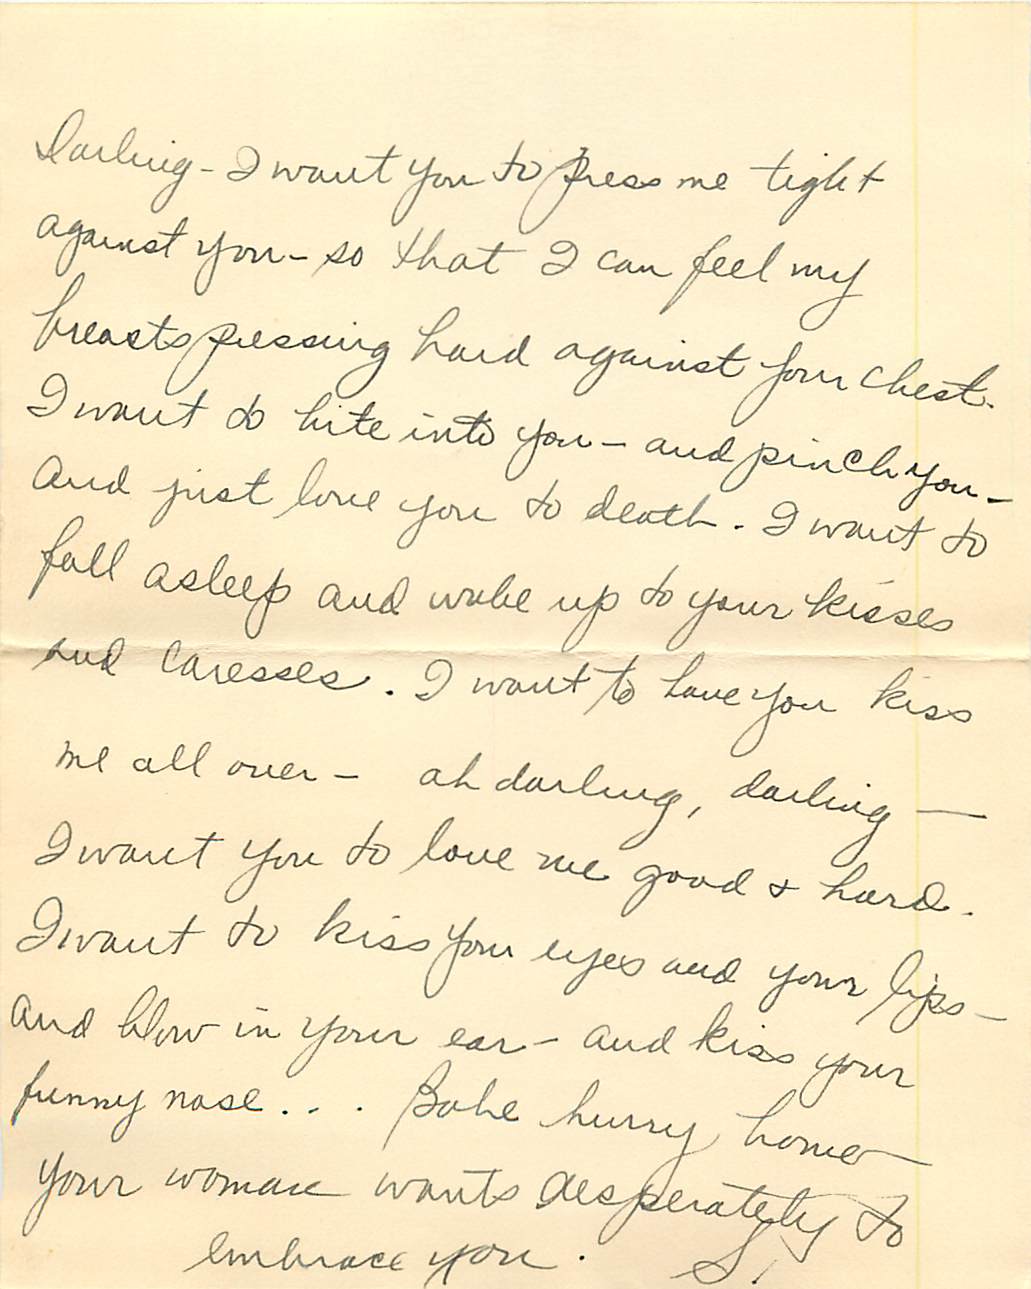 Darling - I want you to press me tight
against you - so that I can feel my
breasts pressing hard against your chest.
I want to bite into you - and pinch you -
and just love you to death. I want to
fall asleep and wake up to your kisses
and caresses. I want to have you kiss
me all over - ah darling, darling —
I want you to love me good & hard.
I want to kiss your eyes and your lips -
and blow in your ear - and kiss your
funny nose... Babe hurry home —
your woman wants desperately to
embrace you. S.